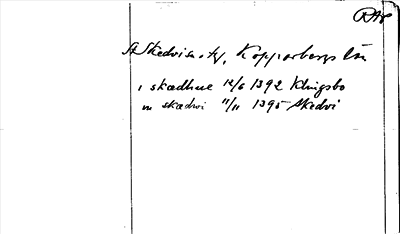 RAP
St Skedvi sn o tg, Kopparbergs län
i skædhue 12/6 1392 Klingsbo
in skædwi 11/11 1395 Skedvi